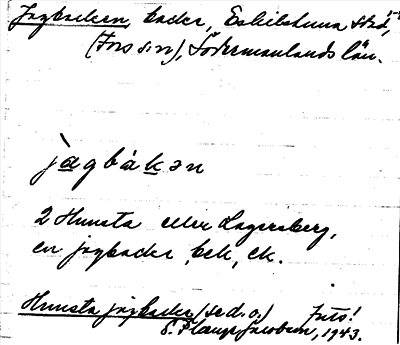 Jagbacken, backe, Eskilstuna stad,
(Fors sn), Södermanlands län.
jàgbákən
2 Hunsta eller Lagersberg,
en jagbacke, bek, ek.
Hunsta jagbacke (se d. o.) Foto!
Jacobson, 1943.